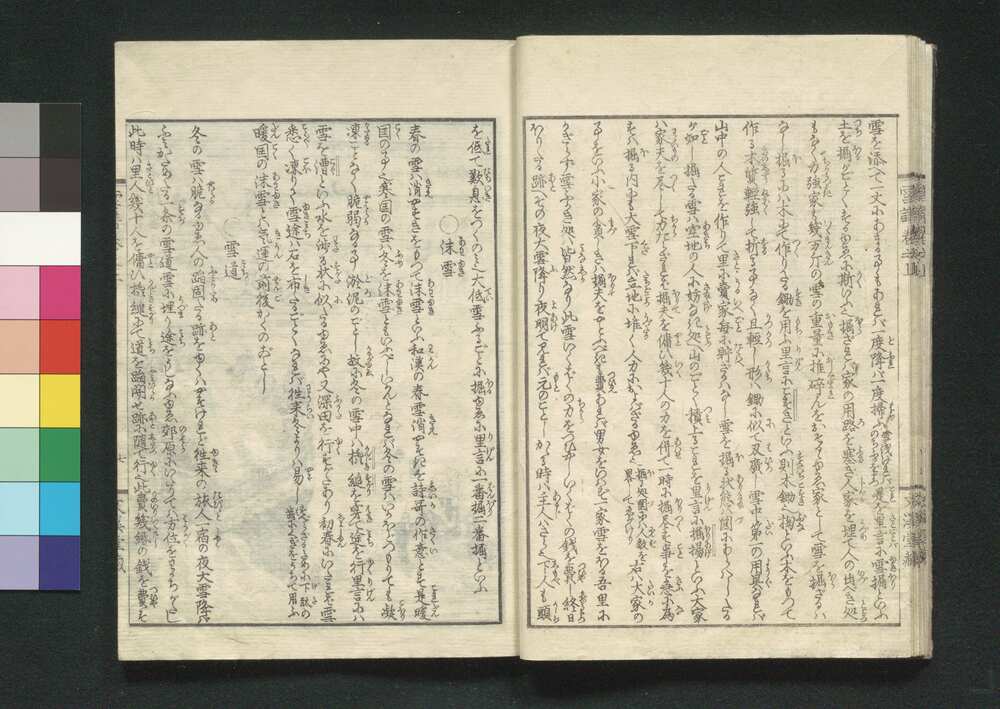 雪を添へて一丈にあまる事もあれば一度降ば一度掃ふ雪浅ければのちふるをまつ是を里言に雪掘といふ
土を掘がごとくするゆゑに斯いふ也掘ざれば家の用路を塞ぎ人家を埋て人の出べき処
もなく力強家も幾万斤の雪の重量に推砕んをおそるゝゆゑ家として雪を掘ざるは
なし掘るには木にて作りたる鋤を用ふ里言にこすきといふ則木鋤也椈といふ木をもつて
作る木質軽強して折る事なく且軽し形は鋤に似て刃広し雪中第一の用具なれば
山中の人これを作りて里に売家毎に貯ざるはなし雪を掘る状態は図にあらはしたる
が如し掘たる雪は空地の人に妨なき処へ山のごとく積上るこれを里言に掘揚といふ大家
は家夫を尽して力たらざれば掘夫を傭ひ幾十人の力を併て一時に掘尽す事を急に為
すは掘る内にも大雪下れば立地に堆く人力におよばざるゆゑ也掘る処図には人数を略してゑがけり右は大家の
事をいふ小家の貧しきは掘夫をやとふべきも費あれば男女をいはず一家雪をほる吾里に
かぎらず雪ふかき処は皆然なり此雪いくばくの力をつひやしいくばくの銭を費し終日
ほりたる跡へその夜大雪降り夜明て見れば元のごとしかゝる時は主人はさら也下人も頭
を低て歎息をつくのみ也大低雪ふるごとに掘ゆゑに里言に一番掘二番掘といふ
○沫雪
春の雪は消やすきをもつて沫雪といふ和漢の春雪消やすきを詩哥の作意とす是暖
国の事也寒国の雪は冬を沫雪ともいふべしいかんとなれば冬の雪はいかほどつもりても凝
凍ことなく脆弱なる事淤泥のごとし故に冬の雪中は橇縋を穿て途を行里言には
雪を漕といふ水を渉る状に似たるゆゑにや又深田を行すがたあり初春にいたれば雪
悉く凍りて雪途は石を布たるごとくなれば往来冬よりは易しすべらざるために下駄の歯にくぎをうちて用ふ
暖国の沫雪とは気運の前後かくのごとし
○雪道
冬の雪は脆なるゆゑ人の踏固たる跡をゆくはやすけれど往来の旅人一宿の夜大雪降ば
ふみかためたる一条の雪道雪に埋り途をうしなふゆゑ郊原にいたりては方位をわかちがたし
此時は里人幾十人を傭ひ橇縋にて道を踏開せ跡に随て行也此費幾緡の銭を費す